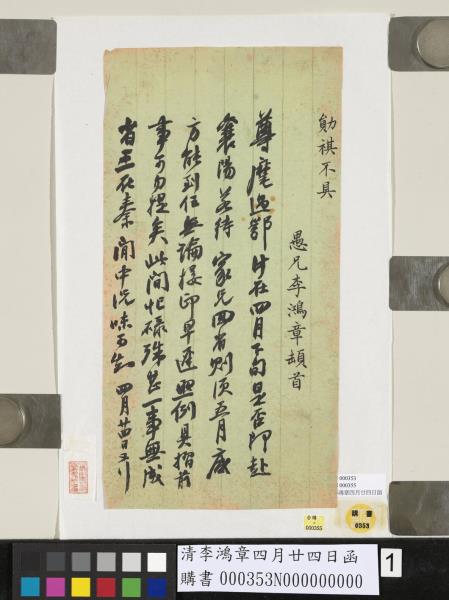 勛祺不具
愚兄李鴻章頓首
尊麾過鄂計在四月下旬是否即赴
襄陽若待家兄回省則須五月底
方能到任無論接印早遲照例具摺前
事可勿提矣此間忙碌殊甚一事無成
省三在秦閒中況味可知 四月廿四日又行
000353
000355
鴻章四月廿四日函
000355
購書
0353
清李鴻章四月廿四日函
購書 000353N000000000
1